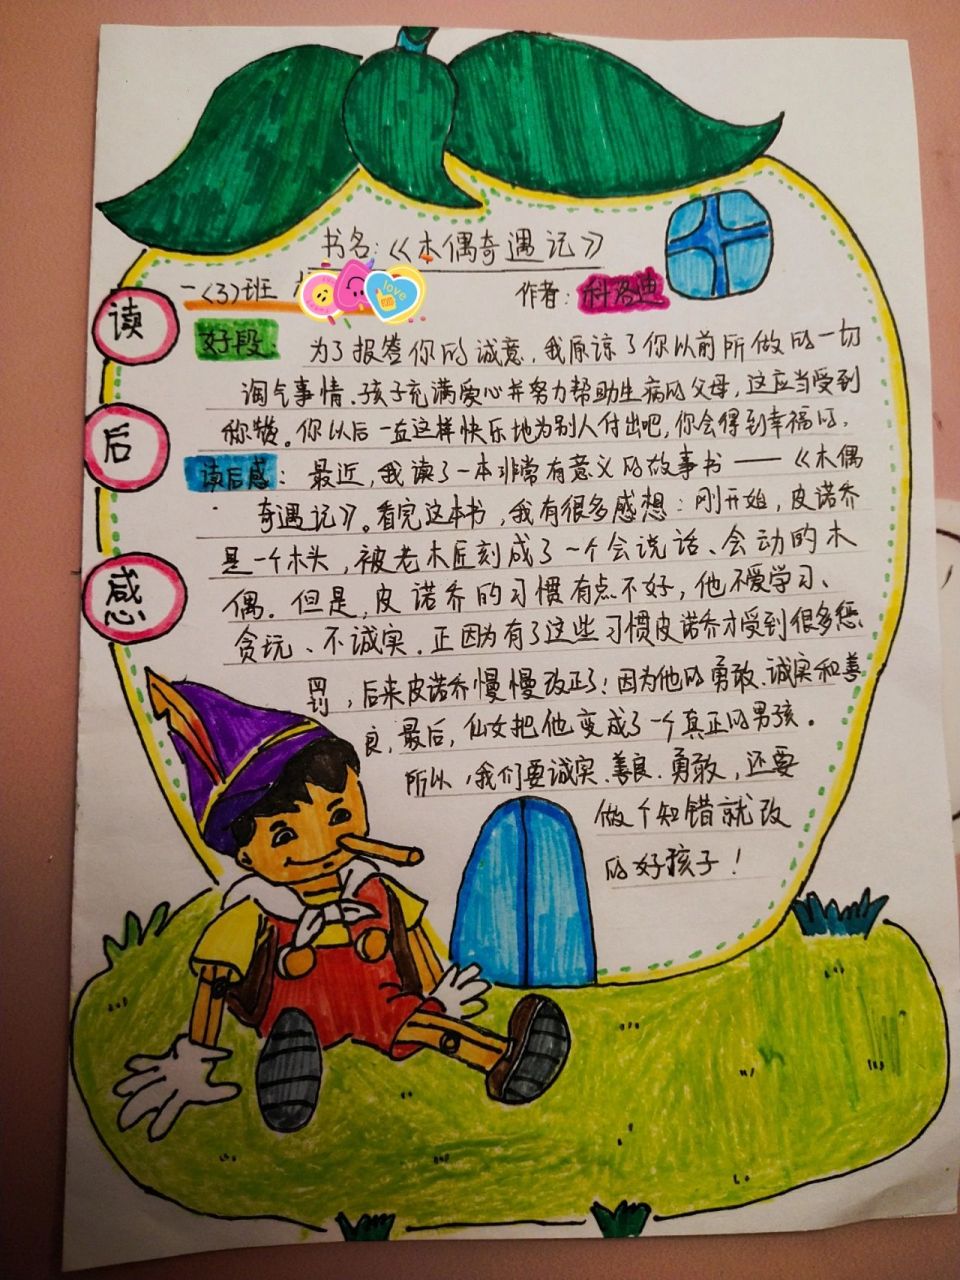 书名:《木偶奇遇记》
一(3)班
作者:科洛迪
读
后
感
好段: 为了报答你的诚意,我原谅了你以前所做的一切
淘气事情.孩子充满爱心并努力帮助生病的父母,这应当受到
称赞。你以后一直这样快乐地为别人付出吧,你会得到幸福的.
读后感: 最近,我读了一本非常有意义的故事书——《木偶
奇遇记》。看完这本书,我有很多感想:刚开始,皮诺乔
是一个木头,被老木匠刻成了一个会说话、会动的木
偶.但是,皮诺乔的习惯有点不好,他不爱学习、
贪玩、不诚实.正因为有了这些习惯皮诺乔才受到很多惩
罚,后来皮诺乔慢慢改正了!因为他的勇敢、诚实和善
良,最后,仙女把他变成了一个真正的男孩。
所以,我们要诚实、善良、勇敢,还要
做个知错就改
的好孩子!
love